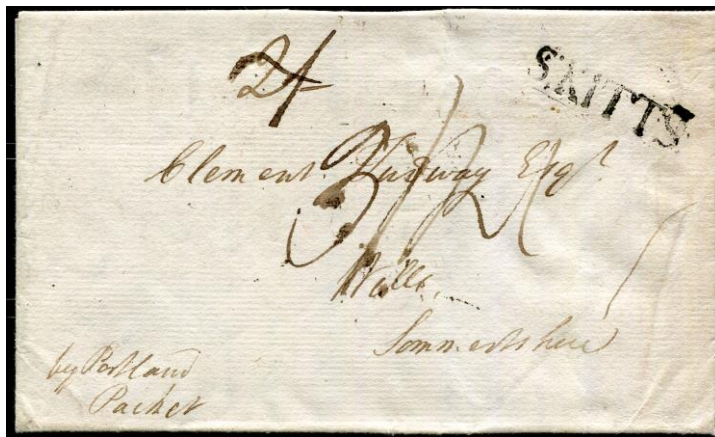 2/
S KITTS
Clement Tudway Esqr.
3/2
Wells
Sommersetshire
by Portland
Packet